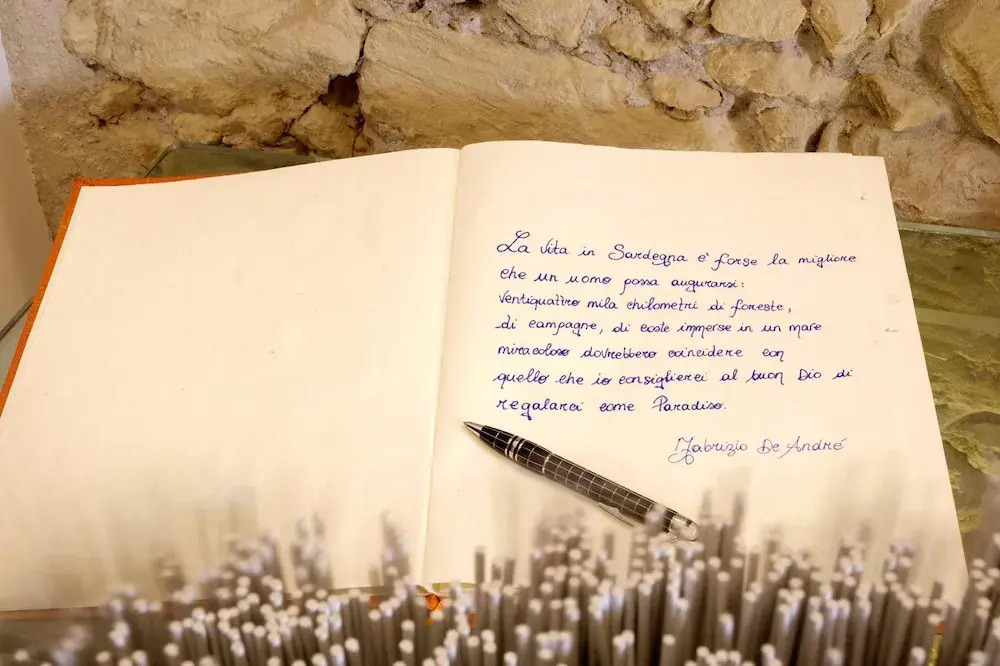 La vita in Sardegna è forse la migliore
che un uomo possa augurarsi:
ventiquattro mila chilometri di foreste,
di campagne, di coste immerse in un mare
miracoloso dovrebbero coincidere con
quello che io consiglierei al buon Dio di
regalarci come Paradiso.
Fabrizio De André